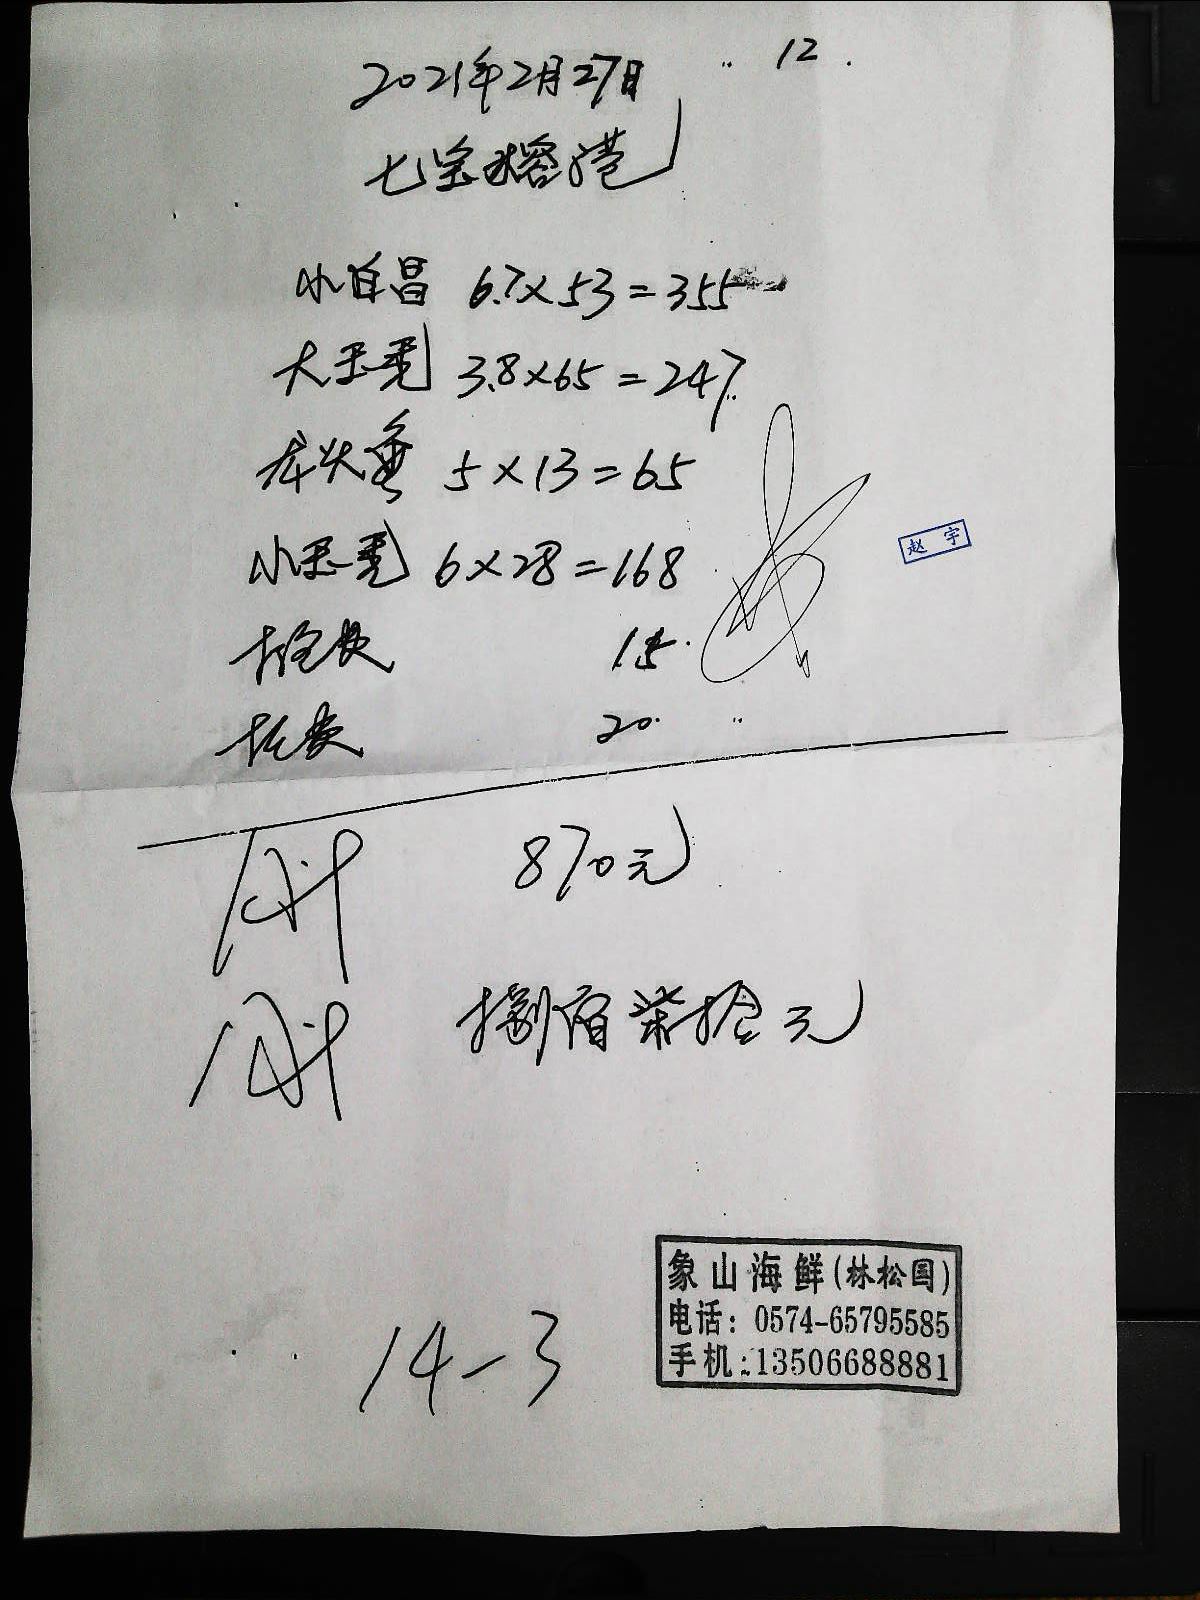 12.
2021年2月27日
七宝水容港
小白昌 6.7×53=355
大玉秃 3.8×65=247
龙头鱼 5×13=65
小玉秃 6×28=168
赵宇
15
20
870元
捌佰柒拾元
象山海鲜(林松国)
电话: 0574-65795585
手机:13506688881
14-3